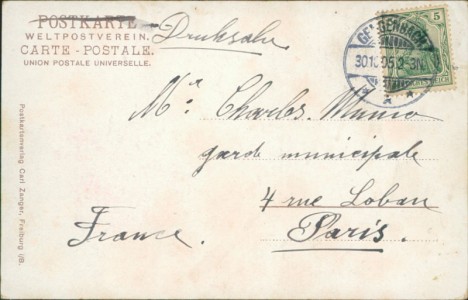 POSTKARTE
WELTPOSTVEREIN.
CARTE - POSTALE.
UNION POSTALE UNIVERSELLE.
Drucksache
GENGENBACH
30.10.05.2-3N.
5
Mr. Charles
garde municipale
4 rue Lobau
Paris.
France.
Postkartenverlag Carl Zanger, Freiburg i/B.